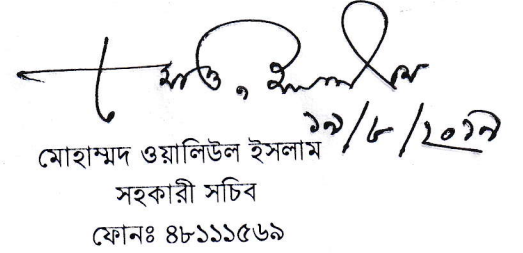 ১৯/৮/২০১৯
মোহাম্মদ ওয়ালিউল ইসলাম
সহকারী সচিব
ফোনঃ ৪৮১১১৫৬৯